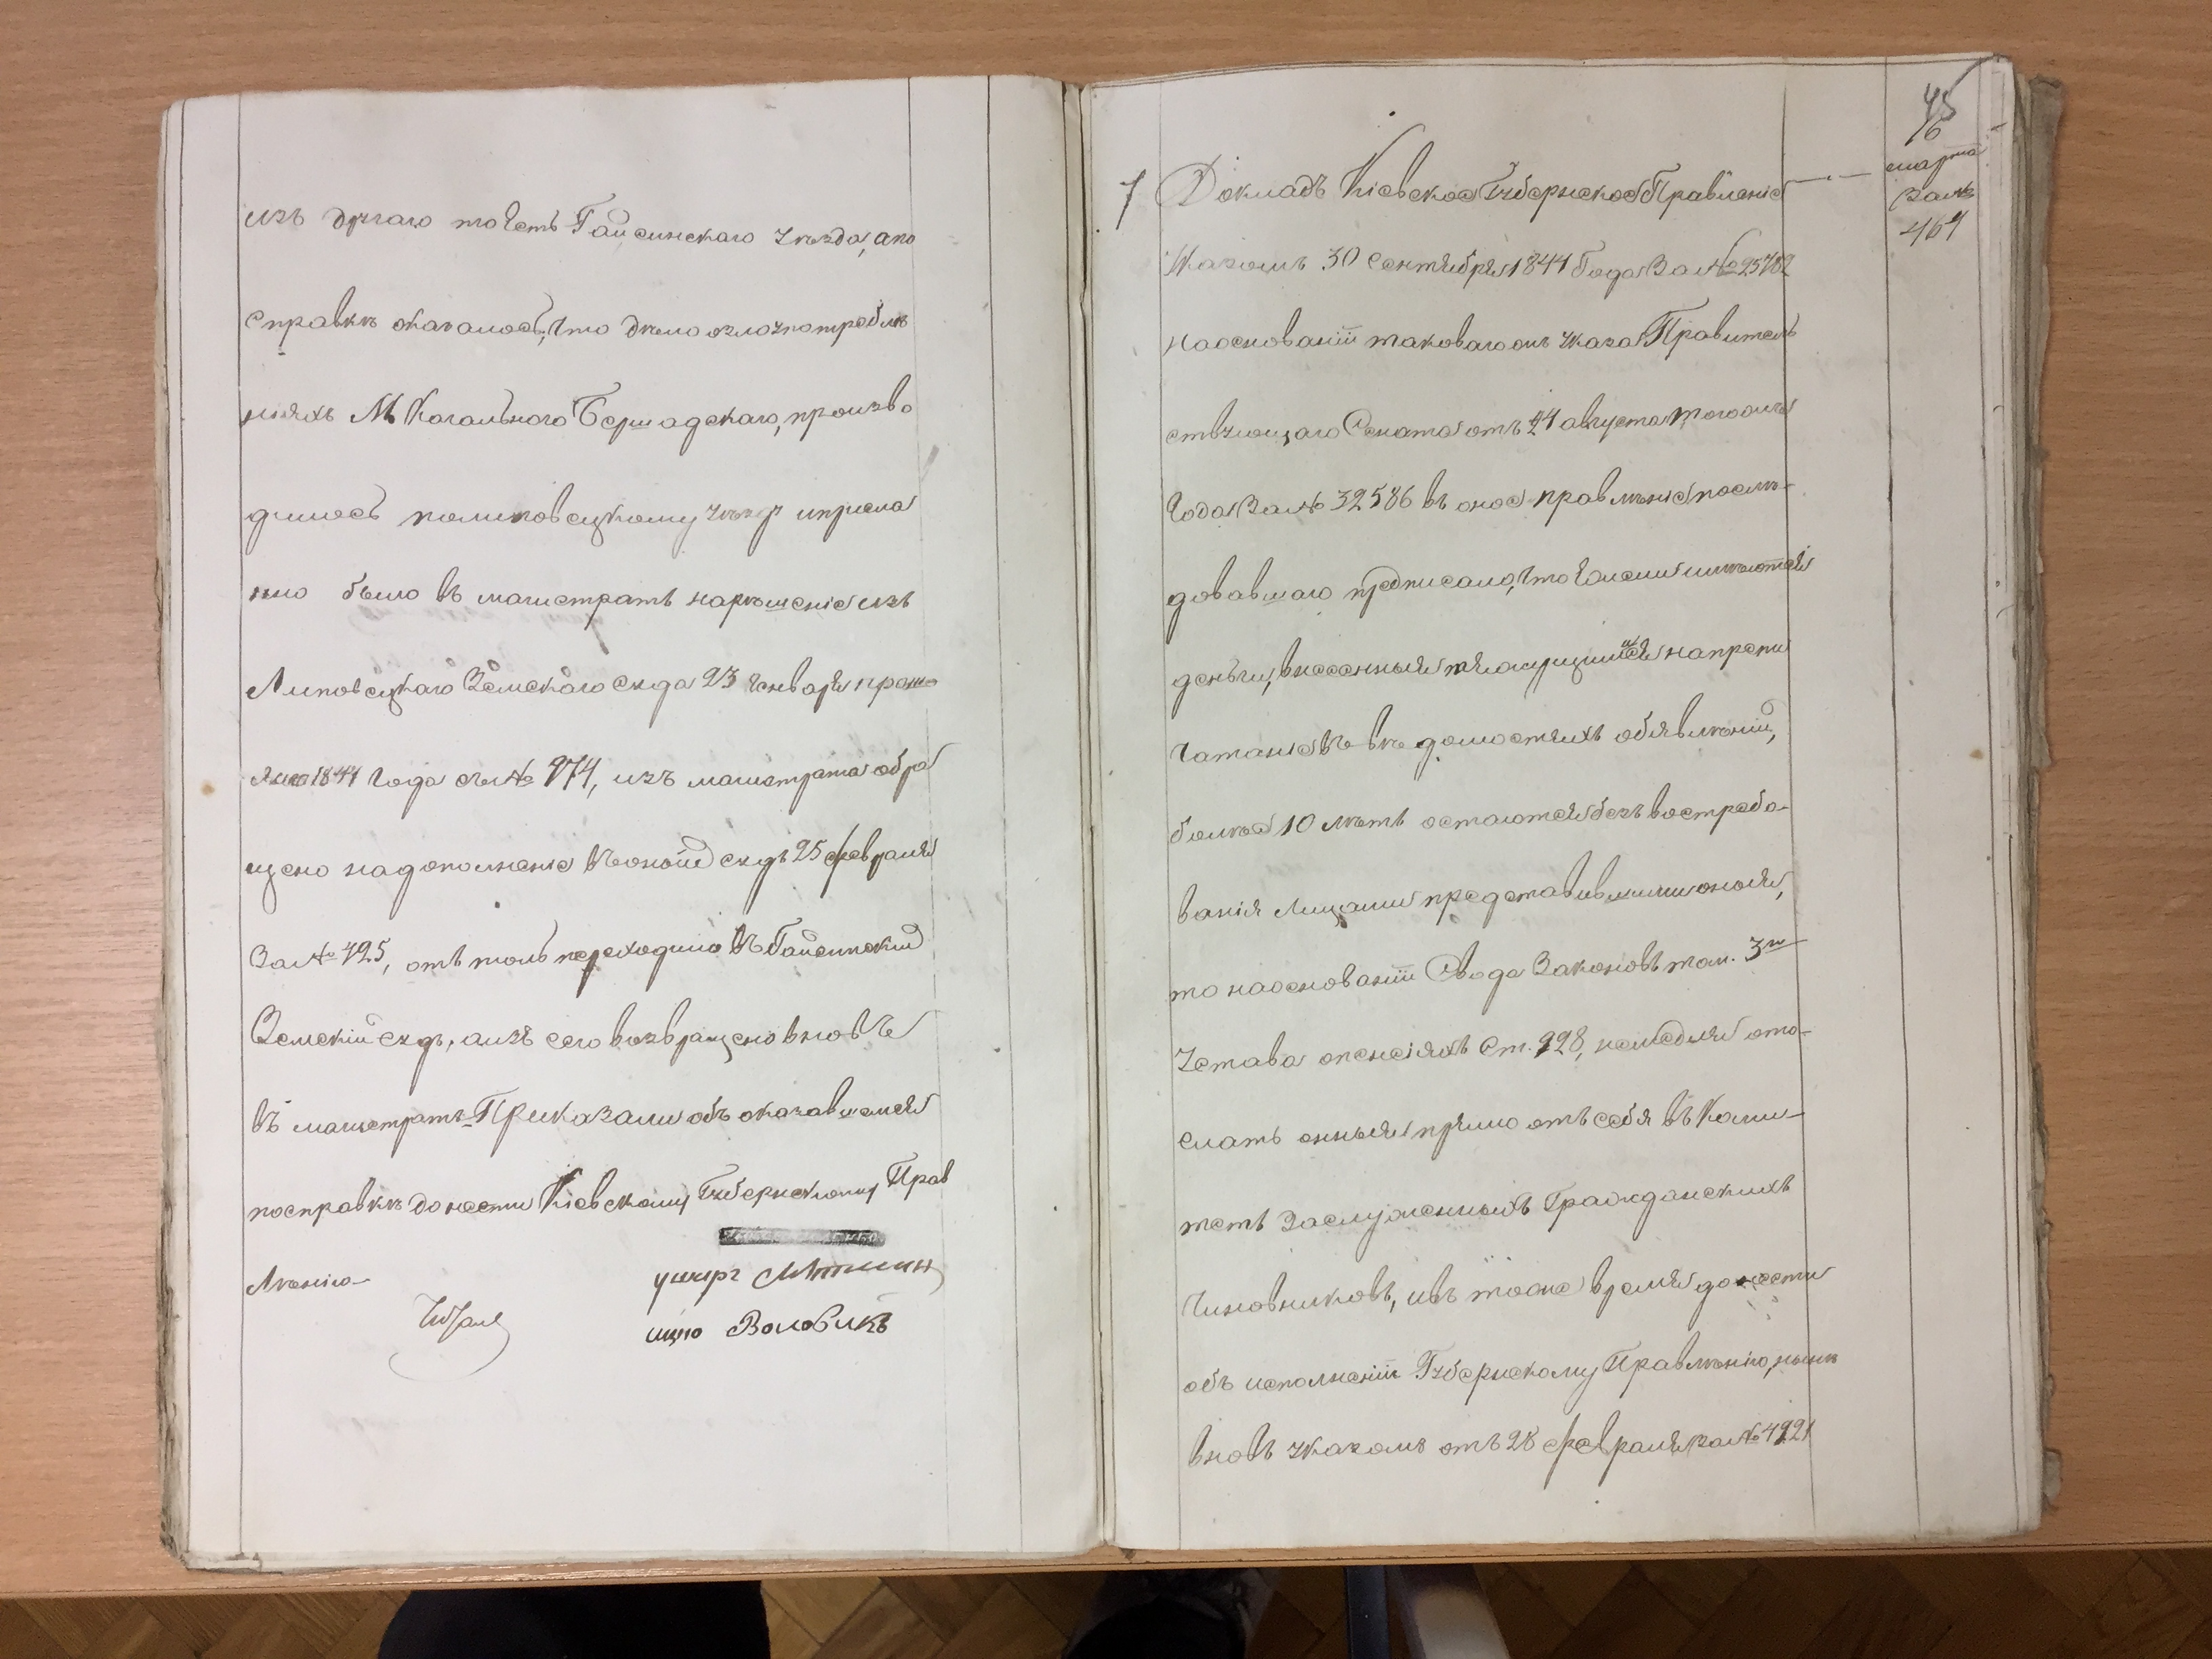 изъ другаго тоесть Гайсинскаго уѣзда, апо
справкѣ оказалось, что дѣло озлоупотребле
ніяхъ М. Кагальнаго Бершадскаго, произво
дилось полиповецкому уѣзду иприсла
но было въ магистратъ нарѣшеніе изъ
Липовецкаго Земскаго суда 23 генваря прош
лаго 1841 года за № 974, изъ магистрата обра
щено надополненіе въоный судъ 25 февраля
За № 425, отъ толь переходило въ Гайсинскій
Земскій судъ, аизъ сего возвращено вновь
въ магистратъ. Приказали объ оказавшемся
посправкѣ донести Кіевскому Губернскому Прав
ленію
Воловикъ
45
16
марта
За №
461
7 Докладъ Кіевское Губернское Правленіе
Указомъ 30 Сентября 1841 Года За № 25782
наоснованіи таковагожъ указа Правитель
ствующаго Сената отъ 21 августа тогожъ
Года За № 32586 въ оное правленіе послѣ-
довавшаго предписало, что Если имѣются
деньги, внесенныя тяжущимися напропе
чатаніе въ вѣдомостяхъ объявленій,
болѣе 10 лѣтъ остаются безъ востребо-
ванія Лицами представившими оныя,
то наоснованіи Свода Законовъ том. 3го
Устава опенсіяхъ Ст. 928, немедля ото-
слать оныя прямо отъ себя въ Коми-
тетъ Заслуженныхъ Гражданскихъ
Чиновниковъ, ивъ тоже время донести
объ исполненіи Губернскому Правленію, нынѣ
вновь указомъ отъ 28 февраля за № 4921